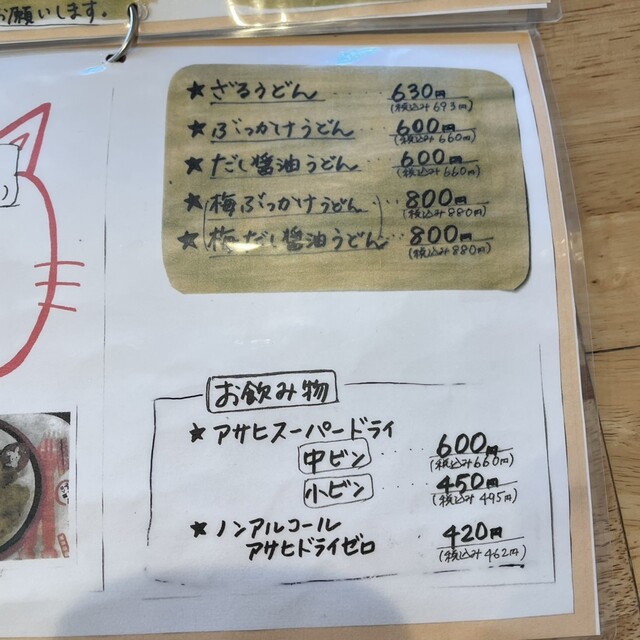 お願いします。
★ざるうどん・・・630円
(税込み693円)
★ぶっかけうどん・・・600円
(税込み660円)
★だし醤油うどん・・・600円
(税込み660円)
★梅ぶっかけうどん・・800円
(税込み880円)
★梅だし醤油うどん・・800円
(税込み880円)
お飲み物
★アサヒスーパードライ
中ビン・・・・600円
(税込み660円)
小ビン・・・・450円
(税込み495円)
★ノンアルコール
アサヒドライゼロ
420円
(税込み462円)